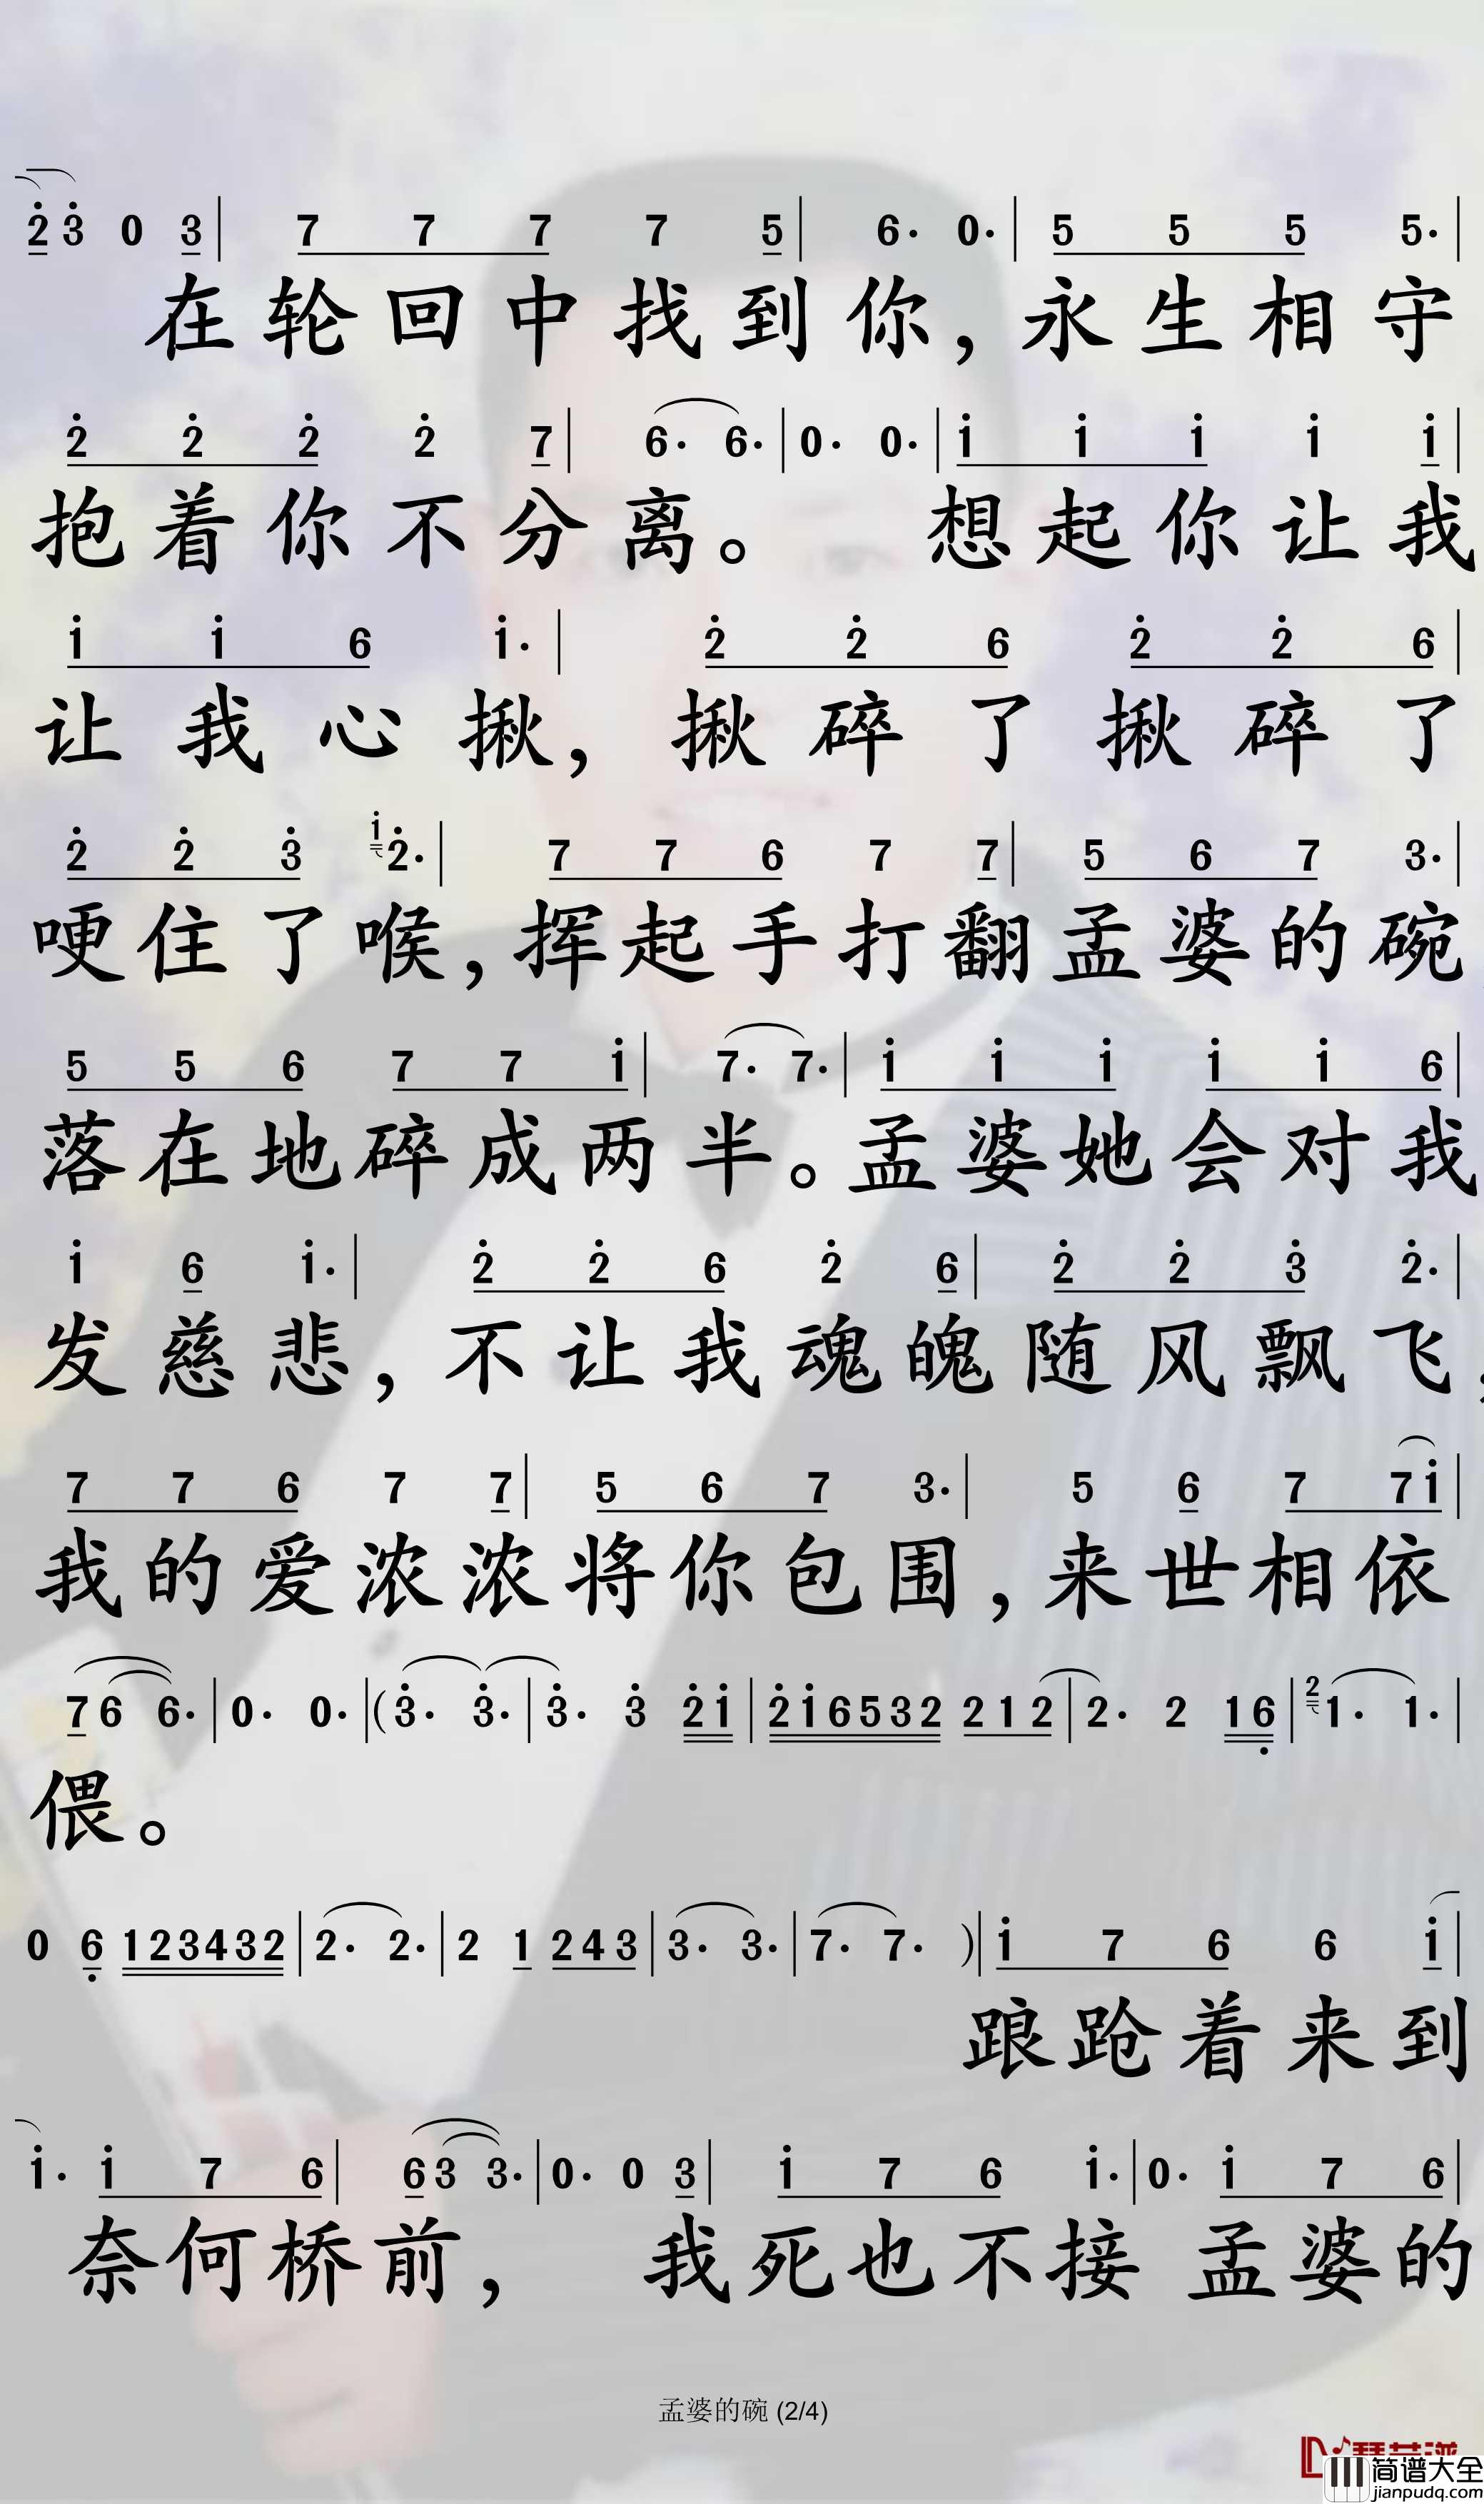 2̇ 3̇ 0 3 | 7 7 7 7 5 | 6· 0· | 5 5 5 5· |
在轮回中找到你，永生相守
2̇ 2̇ 2̇ 2̇ 7 | 6· 6· | 0· 0· | 1̇ 1̇ 1̇ 1̇ 1̇ |
抱着你不分离。 想起你让我
1̇ 1̇ 6 1̇· | 2̇ 2̇ 6 2̇ 2̇ 6 |
让我心揪，揪碎了揪碎了
2̇ 2̇ 3̇ 1̇ 2̇· | 7 7 6 7 7 | 5 6 7 3· |
哽住了喉，挥起手打翻孟婆的碗，
5 5 6 7 7 1̇ | 7· 7· | 1̇ 1̇ 1̇ 1̇ 1̇ 6 |
落在地碎成两半。孟婆她会对我
1̇ 6 1̇· | 2̇ 2̇ 6 2̇ 6 | 2̇ 2̇ 3̇ 2̇· |
发慈悲，不让我魂魄随风飘飞，
7 7 6 7 7 | 5 6 7 3· | 5 6 7 7 1̇ |
我的爱浓浓将你包围，来世相依
7 6 6· | 0· 0· | (3̇· 3̇· | 3̇· 3̇ 2̇ 1̇ | 2̇ 1̇ 6 5 3 2 2 1 2 | 2· 2 1 6̣ | 2 1· 1· |
偎。
0 6̣ 1 2 3 4 3 2 | 2· 2· | 2 1 2 4 3 | 3· 3· | 7· 7· ) | 1̇ 7 6 6 1̇ |
踉跄着来到
1̇· 1̇ 7 6 | 6 3 3· | 0· 0 3 | 1̇ 7 6 1̇· | 0· 1̇ 7 6 |
奈何桥前， 我死也不接 孟婆的
孟婆的碗 (2/4)
简谱大全
jianpudq.com